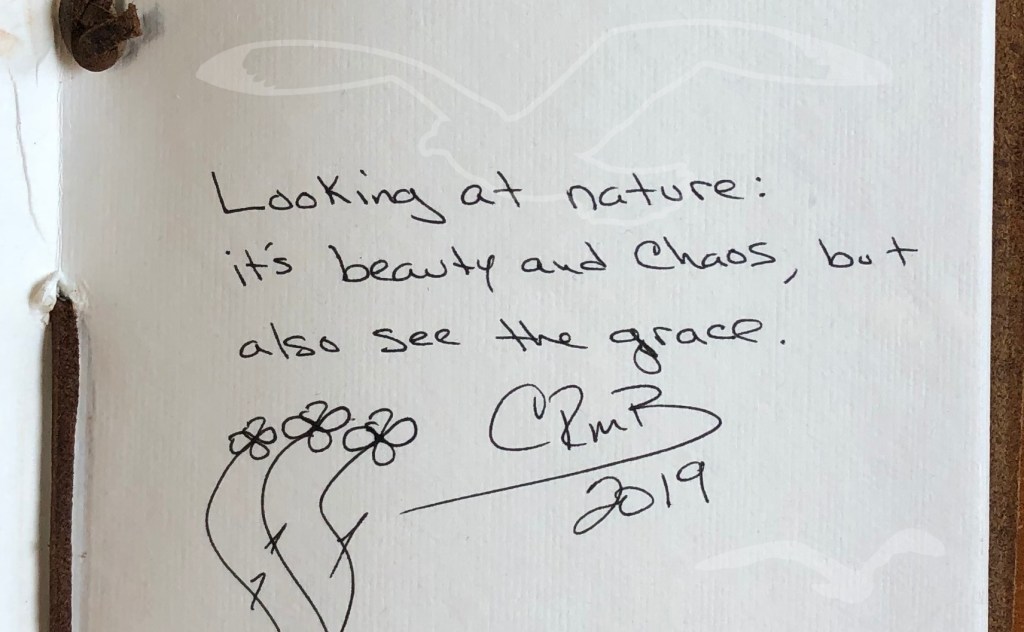 Looking at nature:
it's beauty and Chaos, but
also see the grace.
CRmB
2019